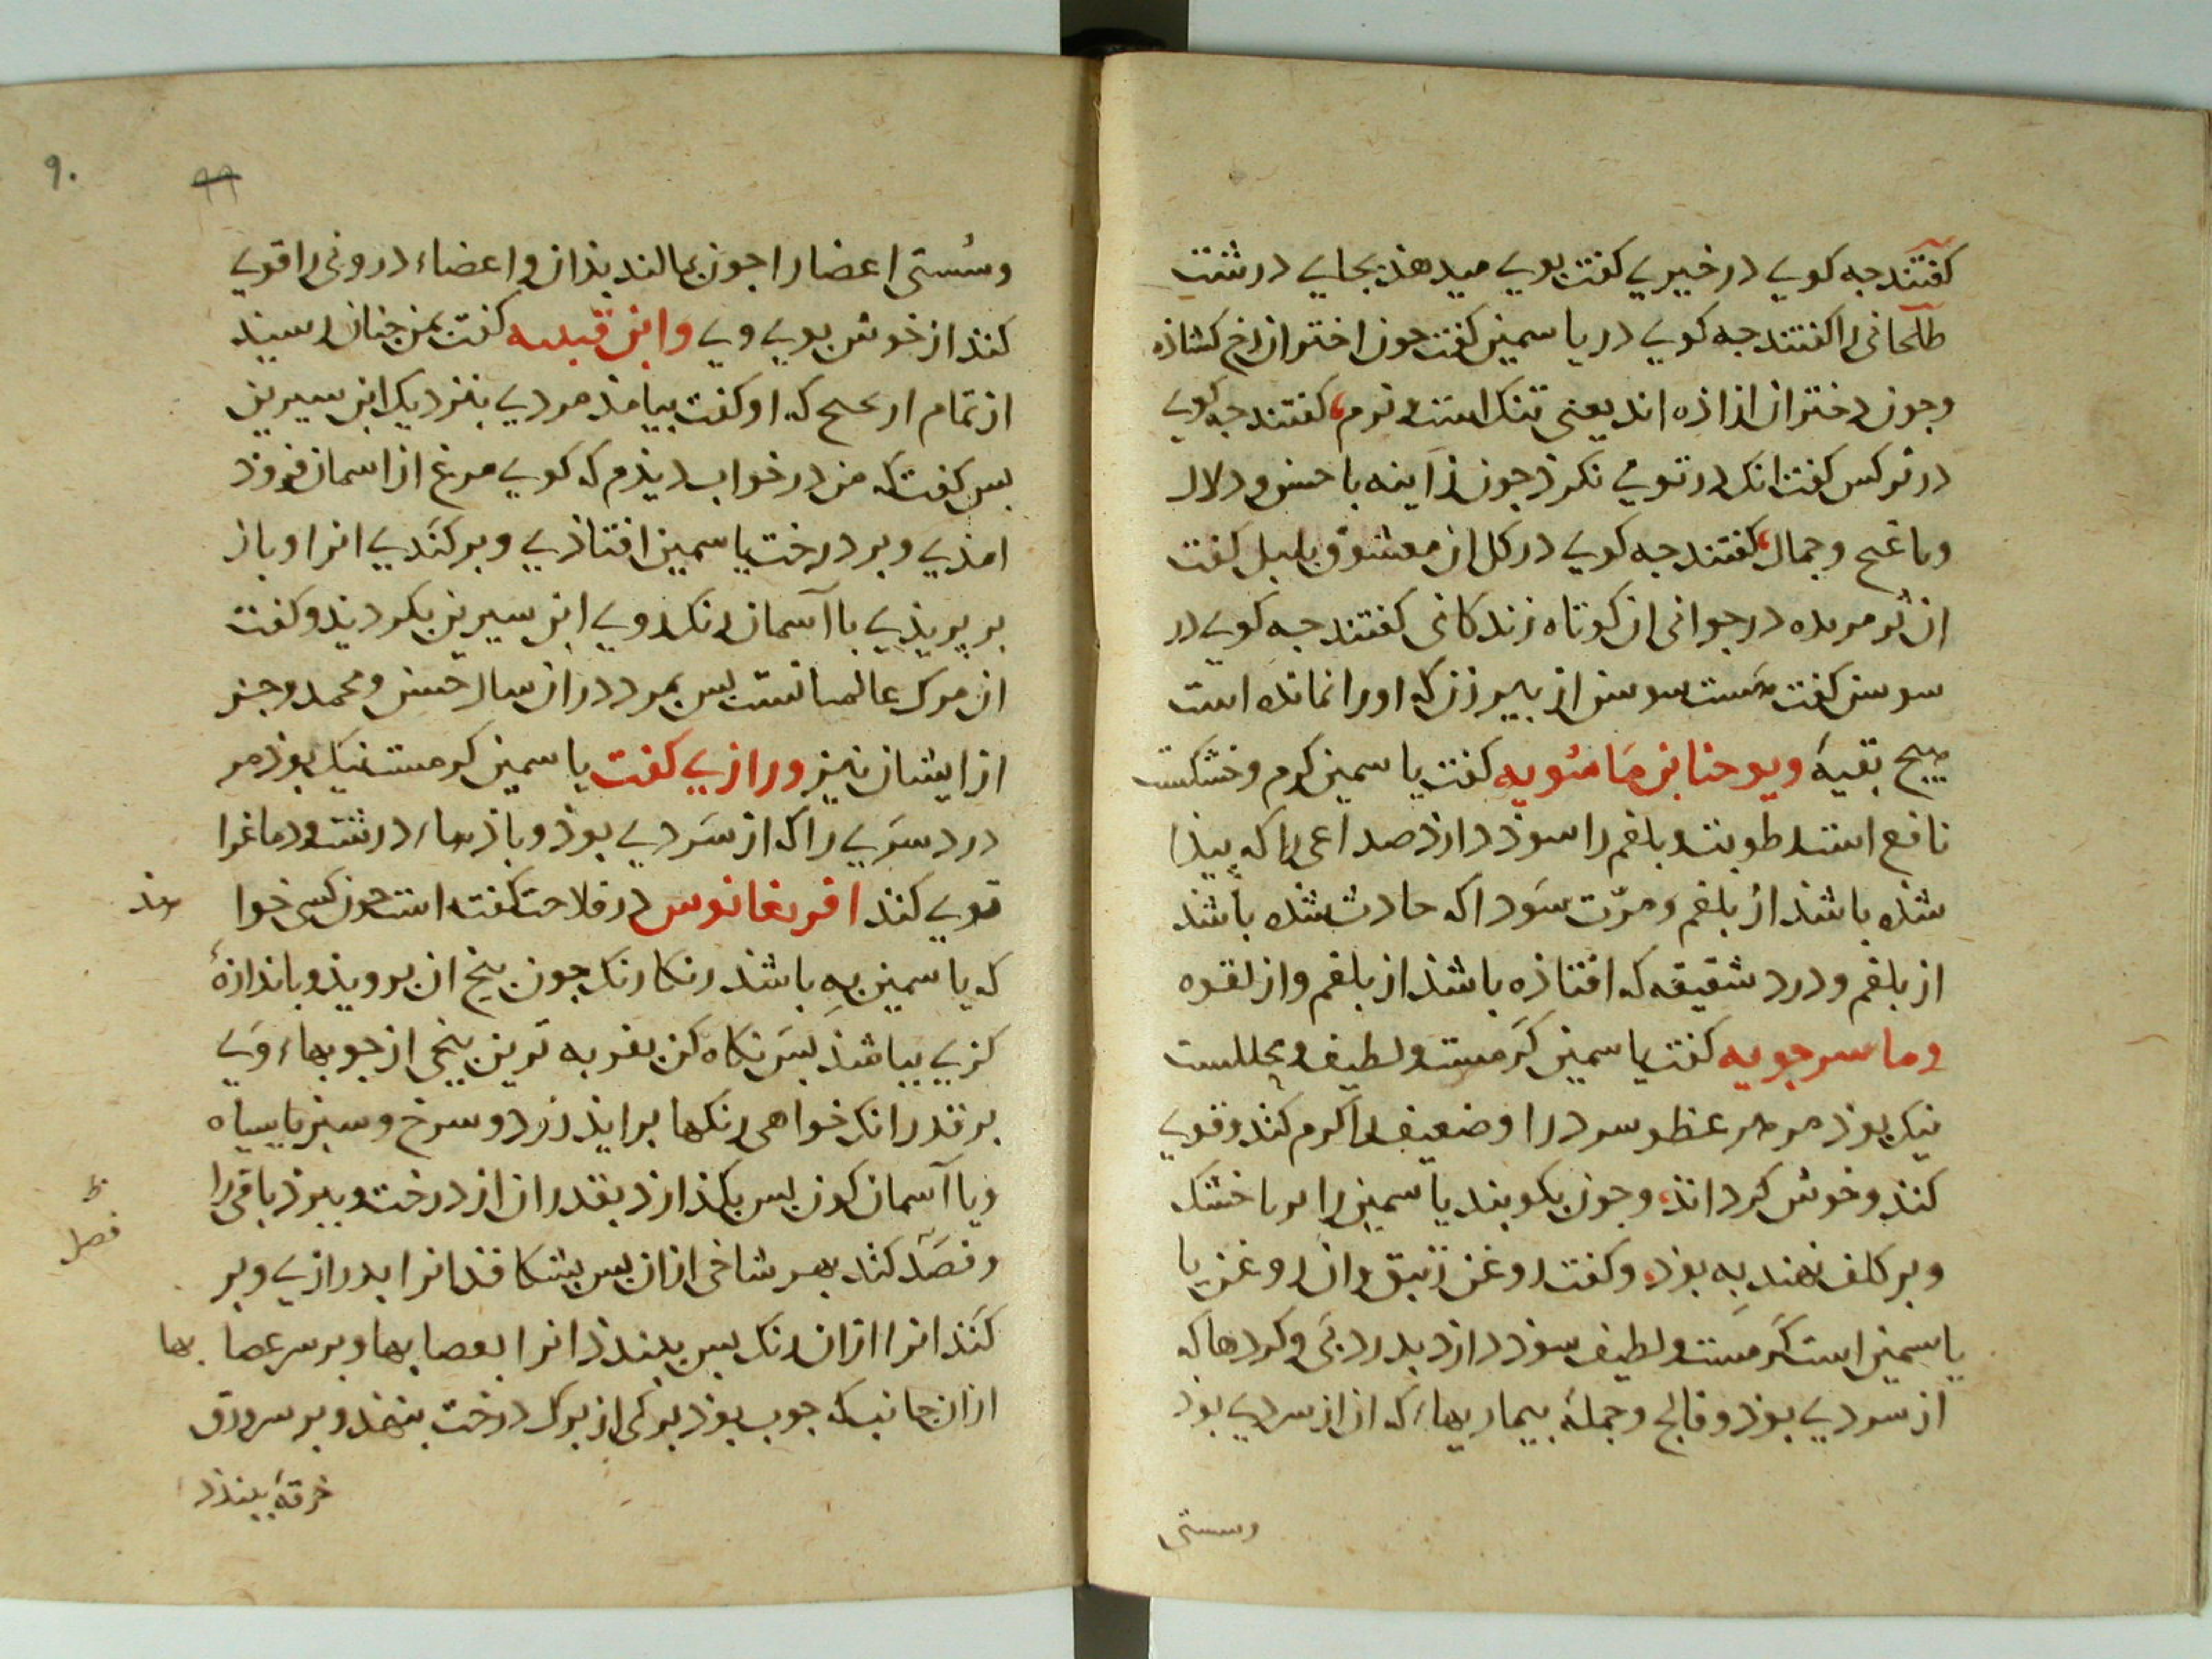 کفتند جه کویی در خیری کفت بویی میدهذ بجایی درشتت
طلحانی را کفتند جه کویی در یاسمین کفت جون اختران رخ کشاذه
وجون دختران ازاذه اند یعنی تنک است و نرم کفتند جه کویی
در نرکس کفت انک در تو می نکرذ جون زاینه با حسن و دلال
وبا غنج وجمال کفتند جه کویی در کل ان معشوق بلبل کفت
ان در جوانی ان کوتاه زندکانی کفتند جه کویی در
سوسن کفت سوسن از بیر زن که اورا نمانده است
هیچ بقیهٔ ویوحنا بن ماسویه کفت یاسمین کرم وخشکست
نافع است رطوبت وبلغم را سوذ دارذ صداعی را که بیذا
شذه باشذ از بلغم ومرّت سَودا که حادث شذه باشذ
از بلغم ودرد شقیقه که افتاذه باشذ از بلغم واز لقوه
وماسرجویه کفت یاسمین کَرمست ولطیف ومحللست
نیک بوذ مر سرد را وضعیف را کرم کند وقوی
کند وخوش کرداند وجون بکوبند یاسمین را خشک
وبر کلف نهند به بوذ وکفت روغن زنبق وان روغن یا
یاسمین است کَرمست ولطیف سوذ دارذ بدرد وکردها که
از سردی بوذ وفالج وجملهٔ بیماریها که ان از سردی بود
وسستی
۹۰
۹۹
وسُستی اعضا را جون بمالند بذان واعضاء درونی را قوی
کند از خوش بویی وی وابن قتیبه کفت بمن جنان رسید
از تمام که او کفت بیامذ مردی بنزدیک ابن سیرین
بس کفت که من در خواب دیذم که کویی مرغ از اسمان فروذ
امذی وبر درخت یاسمین افتاذی وبرکَندی انرا وباز
بر پریذی با آسمان رنک روی ابن سیرین بکردید وکفت
ان مرک عالمانست بس بمرد دران سال حَسن ومحمد وجز
از ایشان نیز ورازی کفت یاسمین کرمست نیک بوذ مر
درد سَری را که از سَردی بوذ وباذهاء درشت ودماغ را
قوی کند در فلاحت کفته است جون کسی خوا
هذ
که یاسمین به باشذ رنکا رنک جون بیخ ان برویذ وباندازهٔ
کزی بباشذ بسَ نکاه کن بفربه ترین بیخی از جوبهاء وَی
بر قدر انک خواهی رنکها برایذ زرد وسرخ وسبز یا سیاه
ویا آسمان کون بس بکذارذ بقدر ان از درخت وببرذ باقی را
وقصَد کند بهر شاخی ازان بس بشکافذ انرا بدرازی وبر
فصل
کنذ انرا ازان رنک بس ببندذ انرا بعصابها وبر سر عصا بها
ازان جانب که جوب بوذ برکی از برک درخت بنهذ وبر سر ورق
خرقهٔ ببندذ